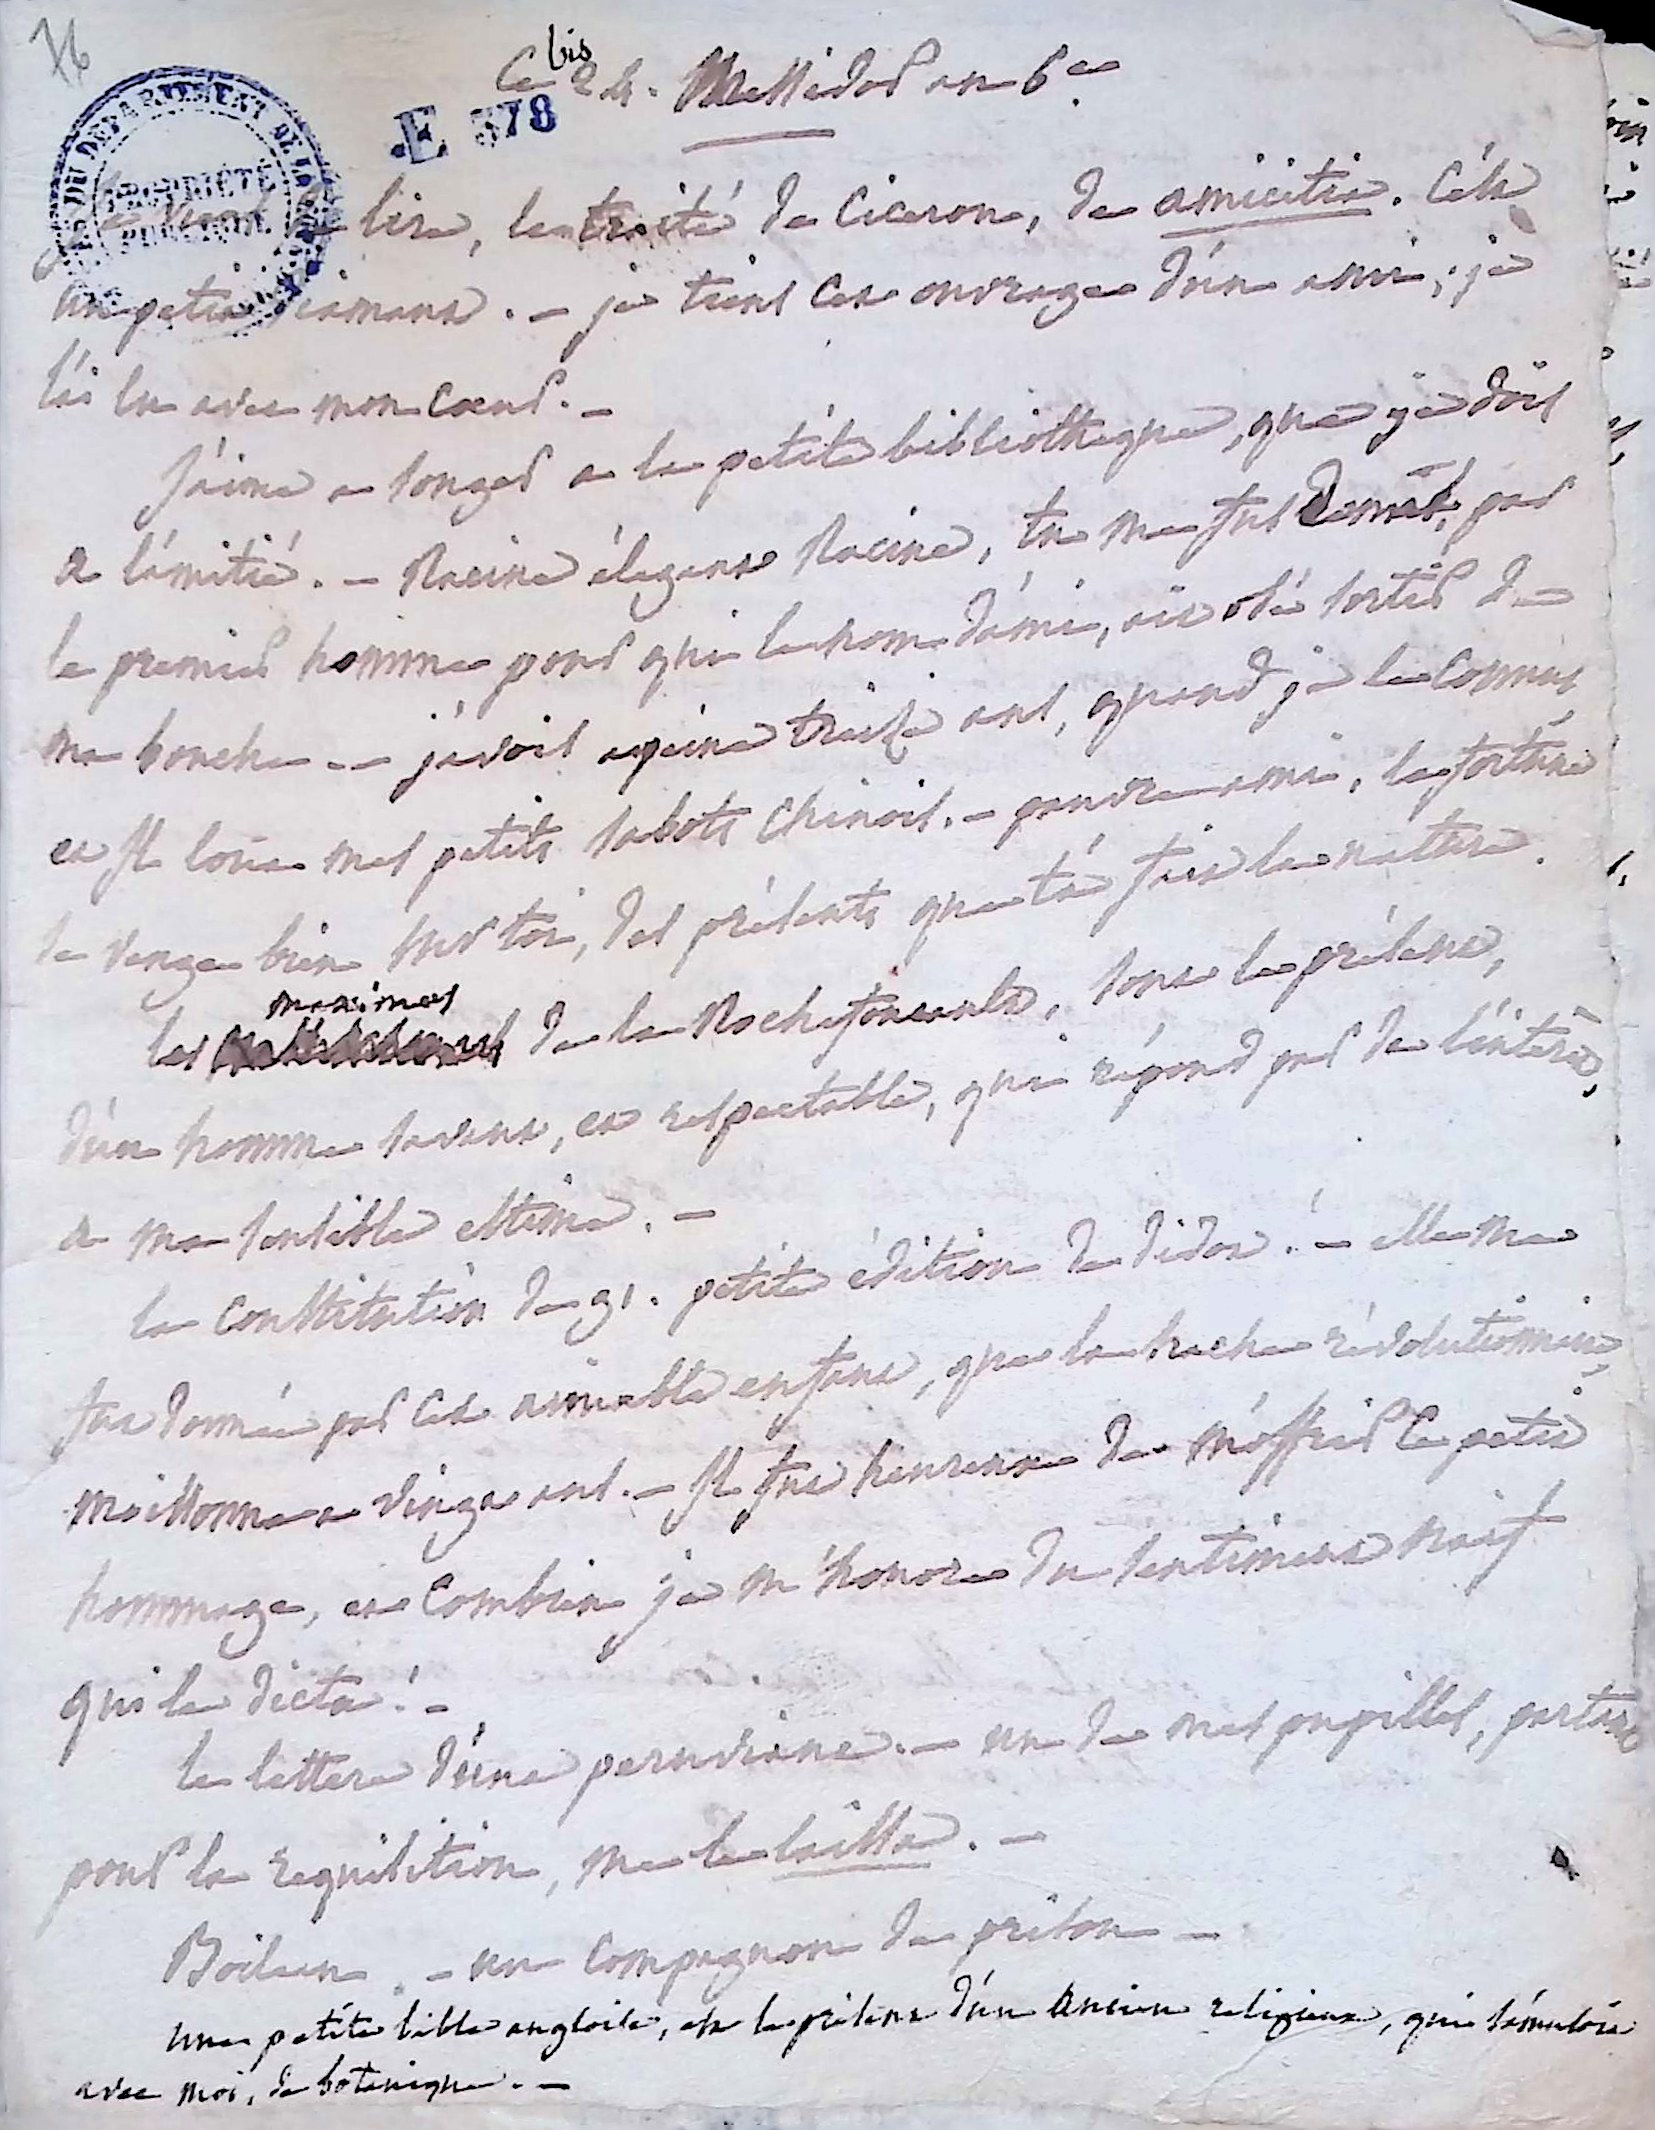 76
bis
Ce 24. Messidor an 6e
E 378
DU DEPARTEMENT DE
PROPRIÉTÉ
PUBLIQUE
je viens de lire, le traité de Ciceron, de amicitia. C'est
un petit diamant. – je tiens cet ouvrage d'un ami, je
l'ai lu avec mon cœur. –
J'aime a songer a la petite bibliotheque, que je dois
a l'amitié. – Racine élegant Racine, tu me fus donné, par
le premier homme pour qui le nom d'ami, ait osé sortir de
ma bouche – j'avois apeine treize ans, quand je le connus
et Il loua mes petits sabots chinois. – pauvre ami, la fortune
se venge bien sur toi, des présents que t'a fait la nature.
maximes
les de la Rochefoucault, sont le présent,
d'un homme savant, et respectable, qui répond par de l'intérêt,
a ma sensible estime. –
la Constitution de 91. petite édition de didot! – elle me
fut donnée par cet aimable enfant, que la hache révolutionnaire,
moissonna a vingt ans. – Il fut heureux de m'offrir ce petit
hommage, et combien je m'honore du sentiment naïf
qui le dicta! –
les lettres d'une peruviene. – un de mes pupilles, partant
pour la requisition, me les laissa. –
Boileau. – un compagnon de prison –
Une petite bible angloise, est le présent d'un ancien religieux, qui s'amusoit
avec moi, de botanique. –